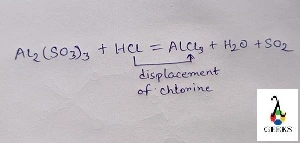 Al₂(SO₃)₃ + HCl = AlCl₃ + H₂O + SO₂
displacement
of chlorine
A
GEEKS